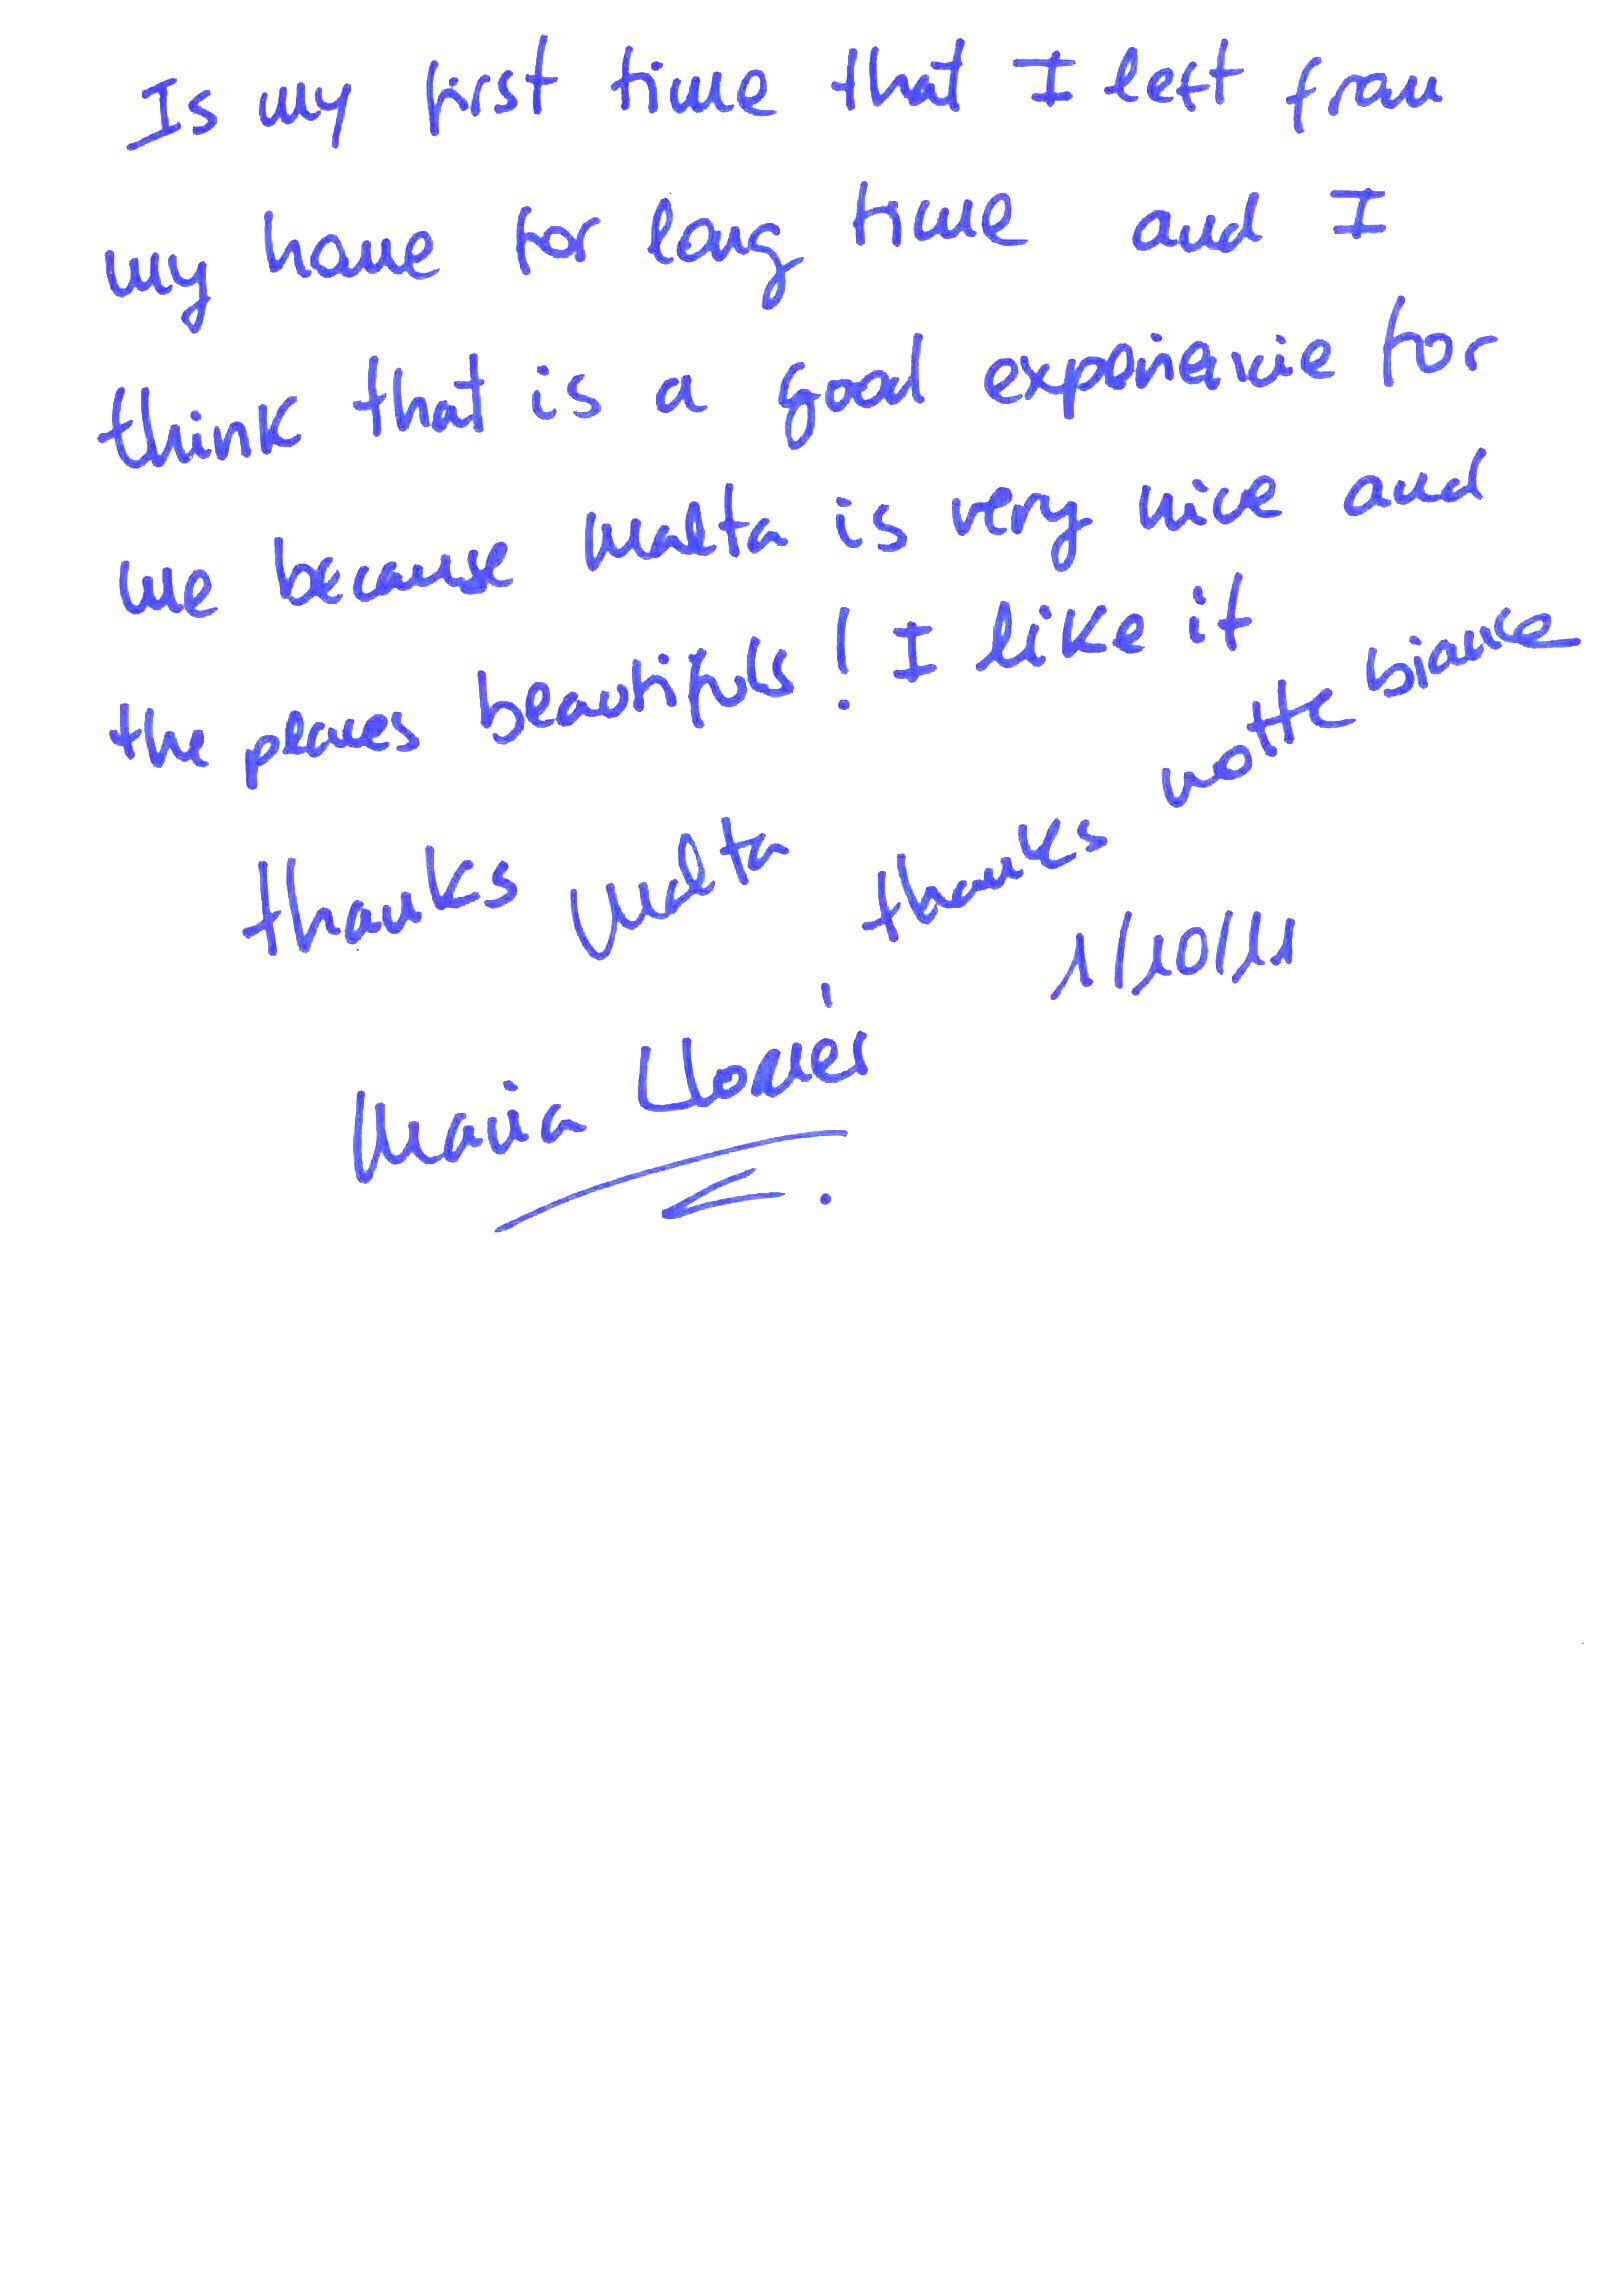 Is my first time that I left from
my home for long time and I
think that is a good experiencie for
me because Malta is very nice and
the places beautifuls! I like it
thanks Malta thanks notte biance
1/10/11
Maria